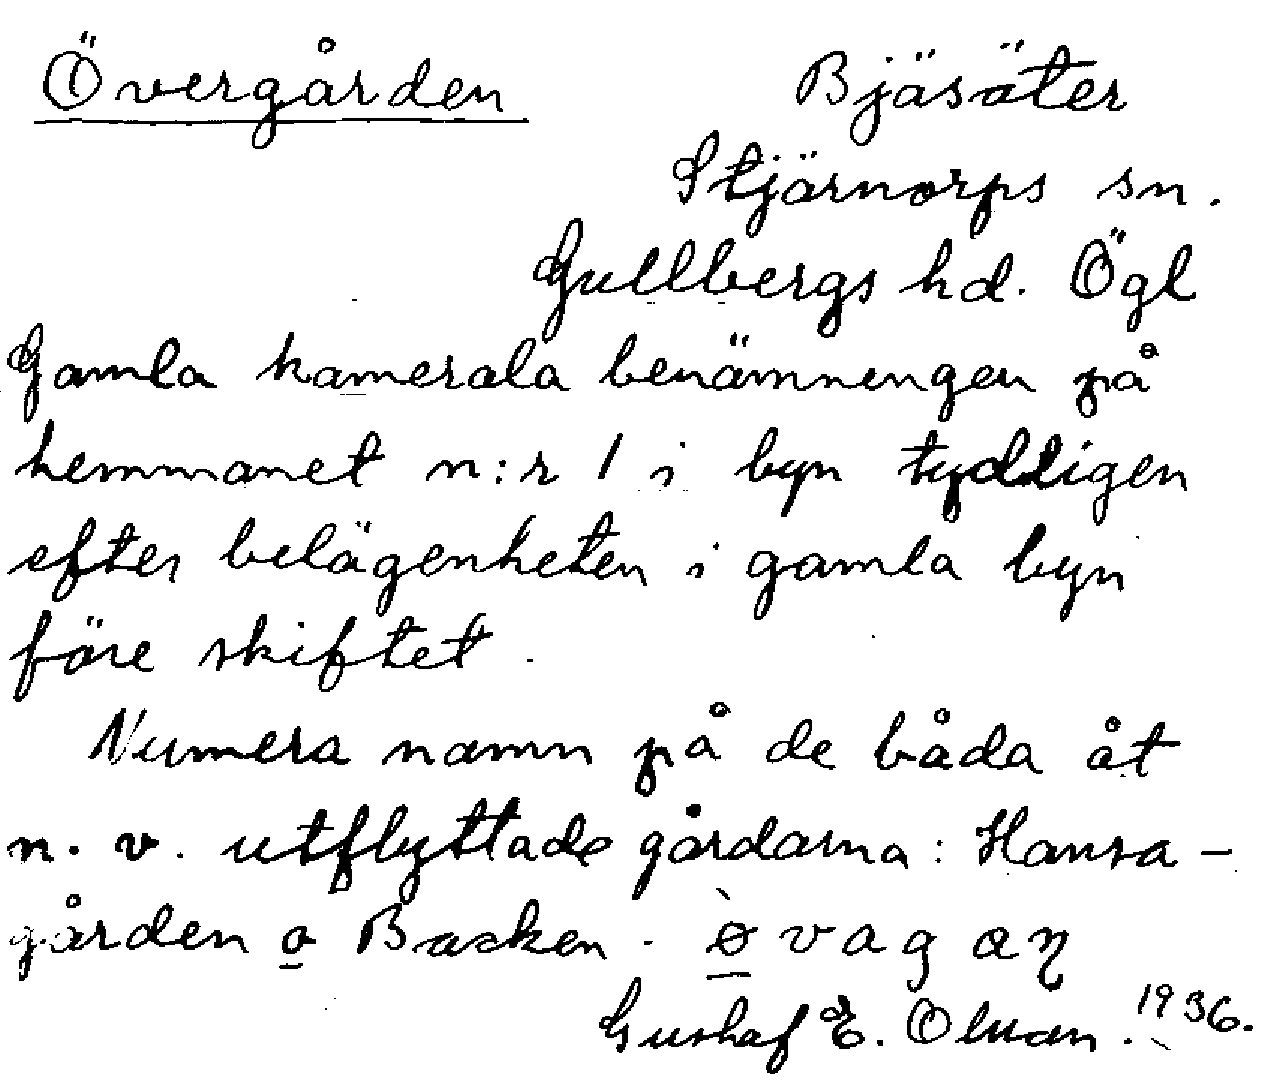 Övergården Bjäsäter
Stjärnorps sn.
Gullbergs hd. Ögl
Gamla kamerala benämningen på
hemmanet n:r 1 i byn tydligen
efter belägenheten i gamla byn
före skiftet.
Numera namn på de båda åt
n. v. utflyttade gårdarna: Hansa-
gården o Backen.
Gustaf E. Olsson. 1936.